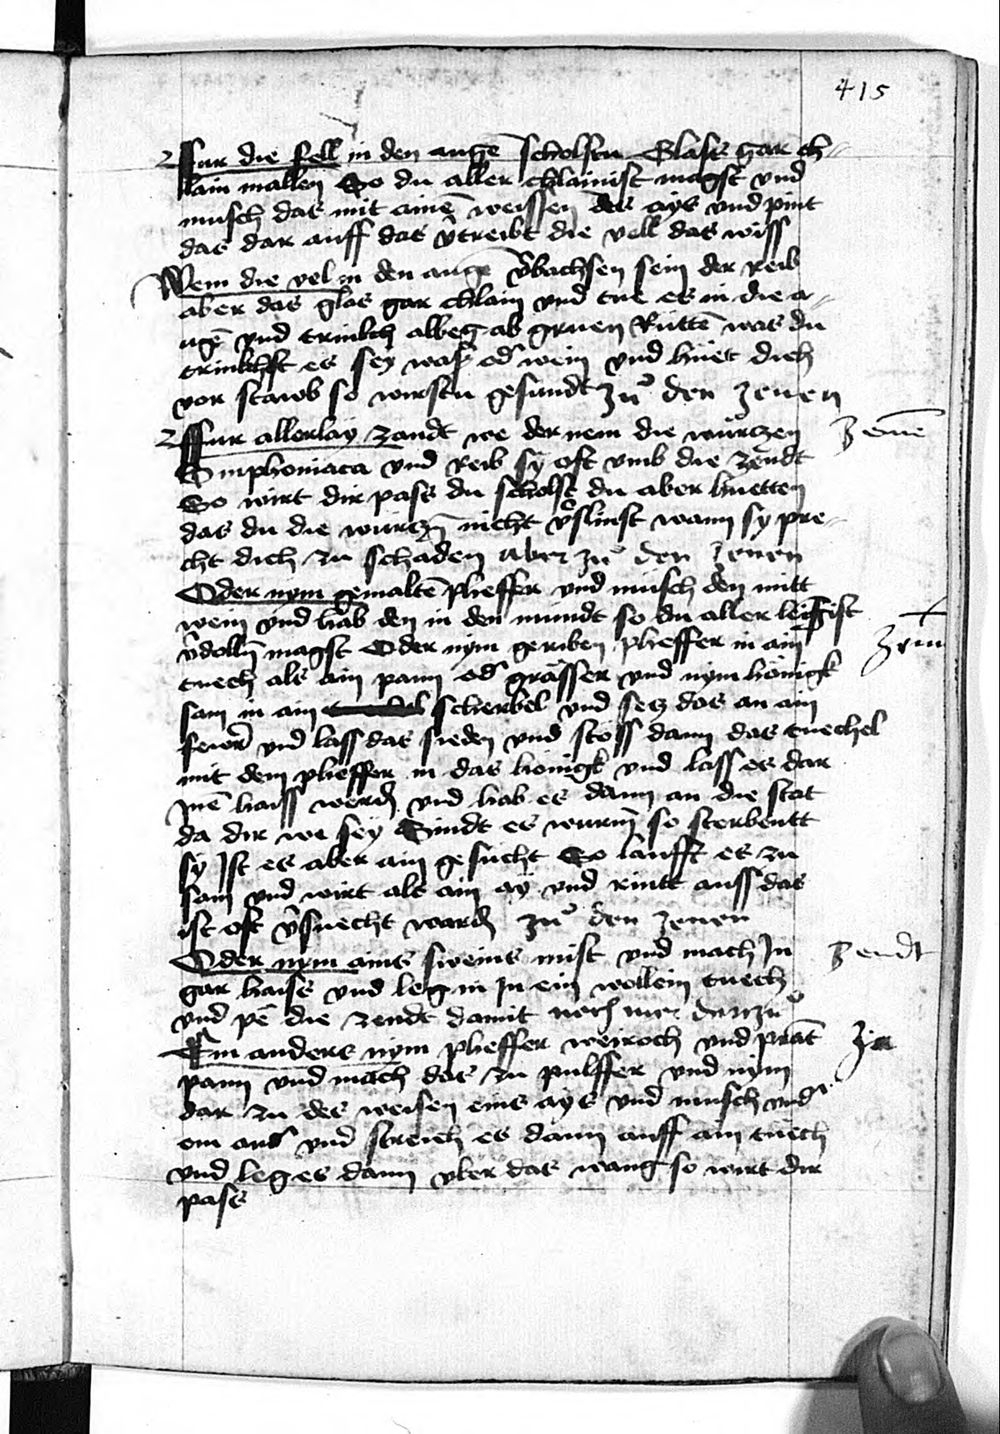 415
Fur die fell in den augē scholstu Glass gar ch-
lain mallen So du aller chlainist magst vnd
musch das mit ainē weissen des ays vnd pint
das dar auff das v̄treibt die vell das wiss
Wem die vel in den augē v̄bachsen sein der reib
aber das glas gar chlain vnd tue es in die a-
ugē vnd trinkch albeg ab gruen Rūttē was du
trinkchst es sey wasser od wein vnd huet dich
vor stawb so wirstu gesundt zů den zenen
Ffur allerlay zandt we der nem die wurczen
zenē
Simphoniaca vnd reib sy oft vmb die zendt
So wirt dir pass du scholst du aber huetten
das du die wurczn̄ nicht v̄slinst wann sy pre-
cht dich zu schaden aber zů den zenen
Oder nym gemaltē pheffer vnd musch den mitt
wein vnd hab den in den mundt so du aller leissist
v̄dolln̄ magst Oder nym geriben pheffer in ain
tuech als ain pann od grasser vnd nym hönigk
sam in ain scherbel vnd secz das an ain
fewr vnd lass das sieden vnd stoss dann das tuechel
mit dem pheffer in das honigk vnd lass es dar
Inē haiss werdn̄ vnd hab es dann an die stat
da dir we sey Sindt es wurm̄ so sterbentt
sy Ist es aber ain gesücht So laufft es zu
sam vnd wirt als ain ay vnd rintt auss das
ist oft v̄suecht wordn̄ zů den zenen
Oder nym ains sweins mist vnd mach In
zendt
gar haiss vnd leg in In ein wollein tuech
vnd pē die zendt damit noch mer darzů
Ein anders nym pheffer weiroch vnd prāt
pann vnd mach das zu pulffer vnd nym
dar zu des weisen eins ays vnd musch vnd
ein and vnd streich es dann auff ain tuech
vnd leg es dann vber das wang so wirt dir
pass